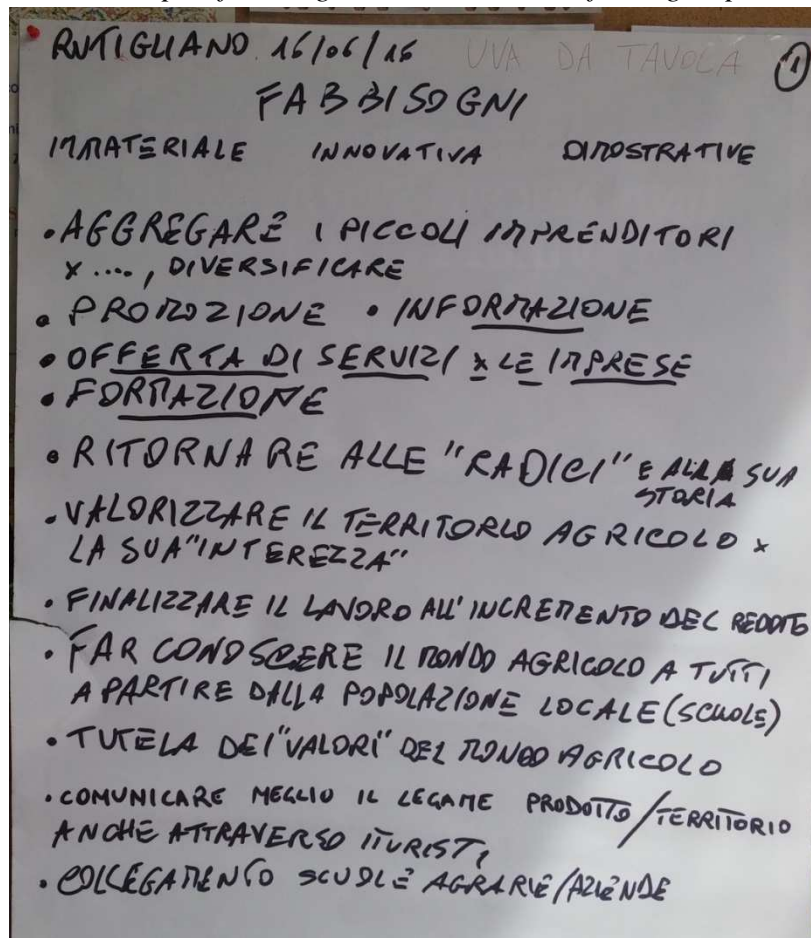 RUTIGLIANO 16/06/16 UVA DA TAVOLA 1
FABBISOGNI
IMMATERIALE INNOVATIVA DIMOSTRATIVE
• AGGREGARE I PICCOLI IMPRENDITORI
x ...., DIVERSIFICARE
• PROMOZIONE • INFORMAZIONE
• OFFERTA DI SERVIZI x LE IMPRESE
• FORMAZIONE
• RITORNARE ALLE "RADICI" E ALLA SUA
STORIA
• VALORIZZARE IL TERRITORIO AGRICOLO x
LA SUA "INTEREZZA"
• FINALIZZARE IL LAVORO ALL'INCREMENTO DEL REDDITO
• FAR CONOSCERE IL MONDO AGRICOLO A TUTTI
A PARTIRE DALLA POPOLAZIONE LOCALE (SCUOLE)
• TUTELA DEI "VALORI" DEL MONDO AGRICOLO
• COMUNICARE MEGLIO IL LEGAME PRODOTTO/TERRITORIO
ANCHE ATTRAVERSO I TURISTI
• COLLEGAMENTO SCUOLE AGRARIE/AZIENDE